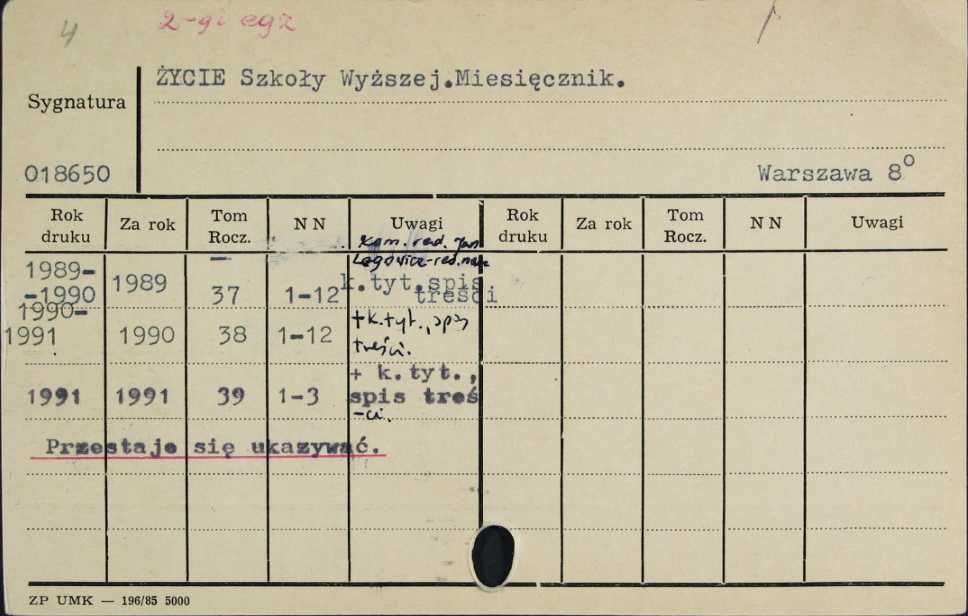 4
2-gi egz
ŻYCIE Szkoły Wyższej.Miesięcznik.
Sygnatura
018650
Warszawa 8°
Rok druku Za rok Tom Rocz. N N Uwagi Rok druku Za rok Tom Rocz. N N Uwagi
Kom. red. Jan
1989- Legowicz-red.
-1990 1989 37 1-12 k.tyt.spis treści
1990-
1991 1990 38 1-12 +k.tyt., spis
treści.
+ k.tyt.,
1991 1991 39 1-3 spis treś
-ci.
Przestaje się ukazywać.
ZP UMK — 196/85 5000